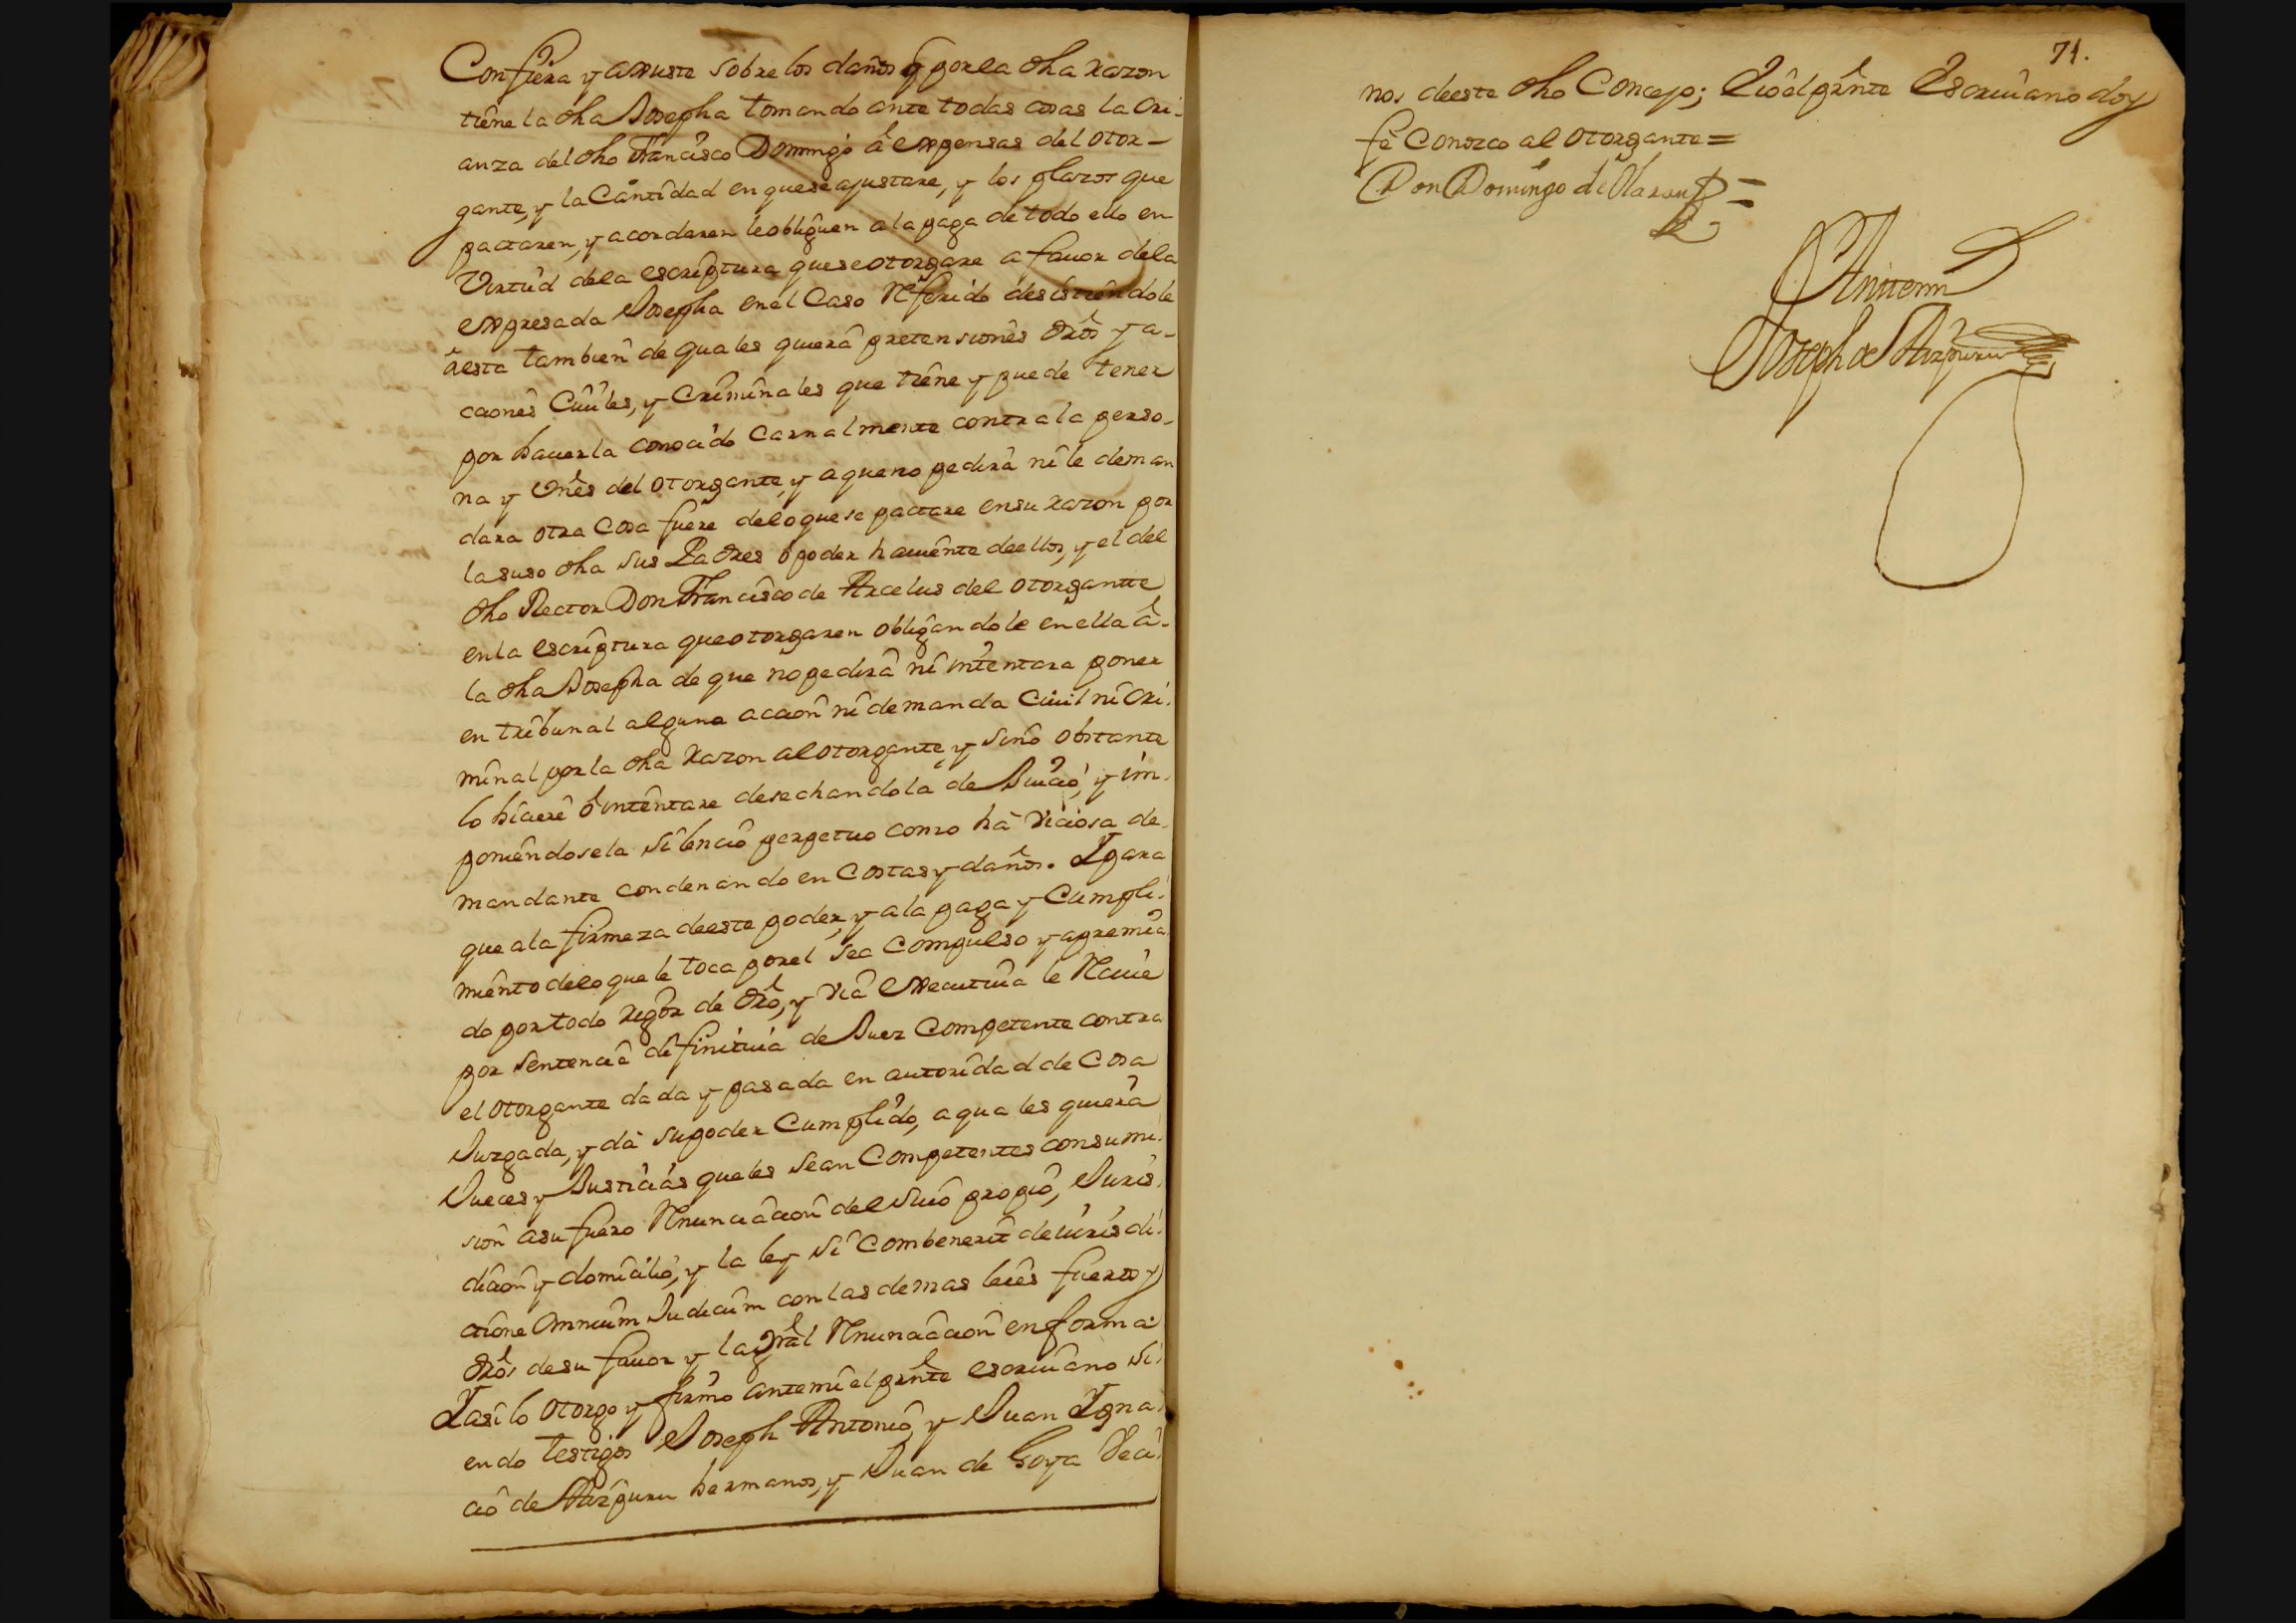 Confiera y axuste sobre los daños q̃ por la dha razon
tiene la dha Josepha tomando ante todas cosas la Cri-
anza del dho Francisco Domingo â expensas del otor-
gante, y la Cantidad en que se ajustare, y los plazos que
pactaren, y acordaren le obliguen a la paga de todo ello en
Virtud dela escriptura que se otorgare a favor dela
expresada Josepha en el Caso Referido desistiendole
âesta tambien de quales quiera pretensiones dros y a-
cciones Civiles, y Criminales que tiene y puede tener
por haverla conocido Carnalmente contra la perso-
na y vnes del otorgante, y a que no pedira ni le deman
dara otra Cosa fuera delo que se pactare en su razon por
la suso dha sus Padres ô poder haviente deellos, y el del
dho Rector Don Francisco de Arcelus del otorgantte
en la escriptura que otorgaren obligandole en ella â-
la dha Josepha de que no pedirâ ni intentara poner
en tribunal alguna accion ni demanda Civil ni Cri-
minal por la dha Razon al otorgante, y sino obstante
lo hiciere ô intentare desechandola de Juicio, y im-
poniendosela silencio perpetuo como hâ viciosa de-
mandante condenando en Costas y daños. Y para
que a la firmeza deeste poder, y a la paga y Cumpli-
miento delo que le toca por el sea Compulso y apremia
do por todo rigor de dro, y viâ executiva le Recive
por sentencia difinitiva de Juez Competente contra
el otorgante dada y pasada en autoridad de Cosa
Juzgada, y dâ su poder Cumplido, a quales quiera
Jueces y Justicias que les sean Competentes con sumi-
sion a su fuero Renunciacion del suio propio, Juris-
dicion y domicilio, y la ley si Combenerit de iurisdi-
ctione Omnium Judicum con las demas leies fueros y
dros de su favor y la gral Renunciacion en forma
Y asi lo otorgo y firmo ante mi el prnte escrivano si-
endo testigos Joseph Antonio, y Juan Igna-
cio de Aizpuru hermanos, y Juan de Goya Veci-
71.
nos deeste dho Concejo; E io el prnte Escrivano doy
feê Conozco al otorgante =
Don Domingo de Olazav =
Ante mi
Joseph de Aizpuru